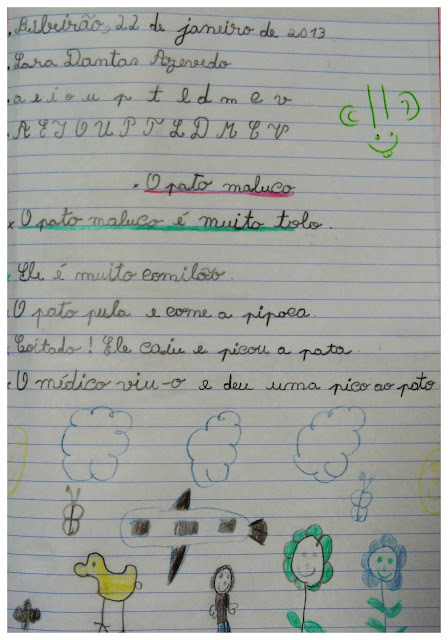 Ribeirão, 22 de janeiro de 2013
Lara Dantas Azevedo
a e i o u p t l d m c v
A E I O U P T L D M C V
O pato maluco
O pato maluco é muito tolo.
Ele é muito comilão.
O pato pula e come a pipoca.
Coitado! Ele caiu e picou a pata.
O médico viu-o e deu uma pica ao pato.